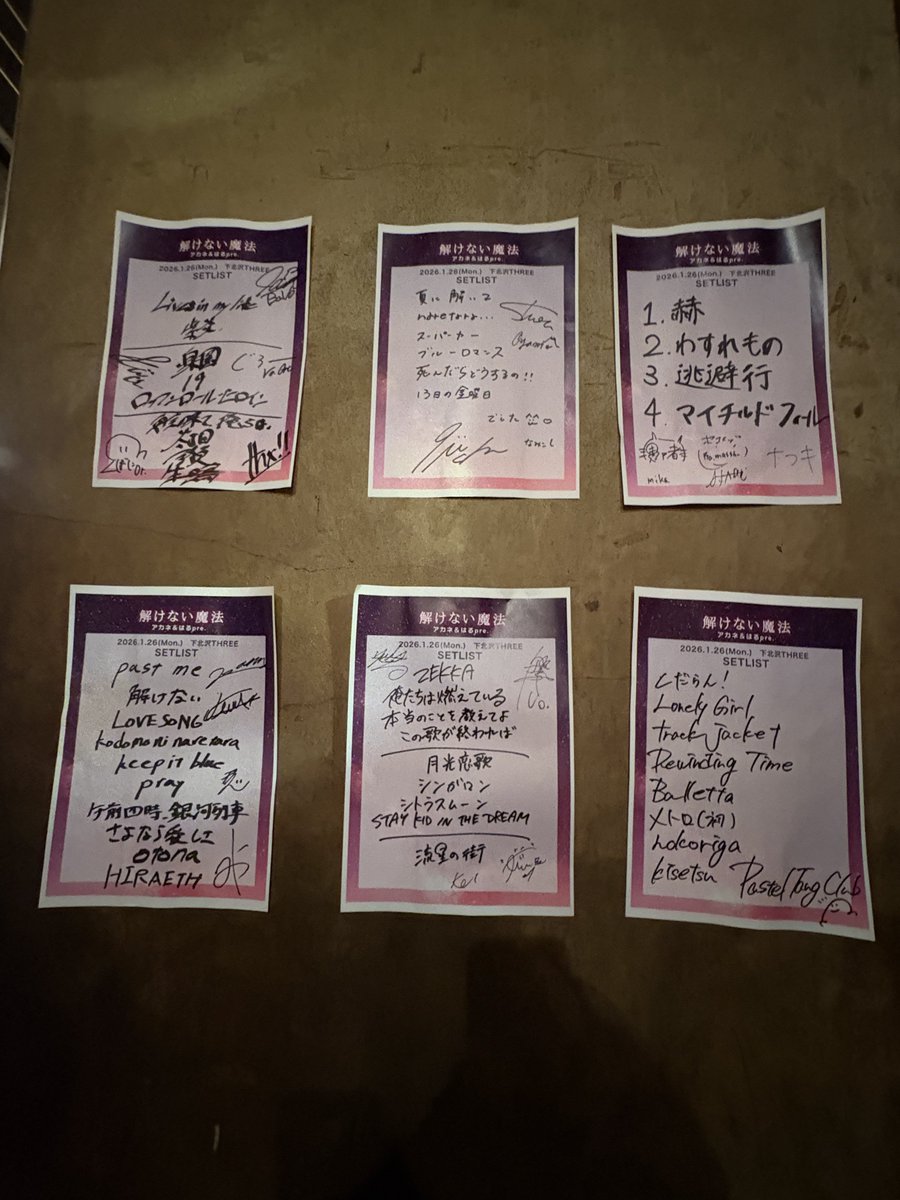 解けない魔法
アカネ&はるpre.
2026.1.26(Mon.) 下北沢THREE
SETLIST
Lives in my life
楽園
19
ロックンロールヒロイン
thx!!
解けない魔法
アカネ&はるpre.
2026.1.26(Mon.) 下北沢THREE
SETLIST
夏に解いて
スーパーカー
ブルーロマンス
死んだらどうするの!!
13日の金曜日
でした
解けない魔法
アカネ&はるpre.
2026.1.26(Mon.) 下北沢THREE
SETLIST
1. 赫
2. わすれもの
3. 逃避行
4 マイチルドフィール
ナツキ
mika
解けない魔法
アカネ&はるpre.
2026.1.26(Mon.) 下北沢THREE
SETLIST
past me
解けない
LOVE SONG
kodomoni naretara
keep it blue
pray
午前四時、銀河列車
さよなら愛しき
otona
HIRAETH
解けない魔法
アカネ&はるpre.
2026.1.26(Mon.) 下北沢THREE
SETLIST
ZEKKA
俺たちは燃えている
本当のことを教えてよ
この歌が終われば
月光恋歌
シンガロン
シトラスムーン
STAY KID IN THE DREAM
流星の街
Kei
解けない魔法
アカネ&はるpre.
2026.1.26(Mon.) 下北沢THREE
SETLIST
しだらん!
Lonely Girl
track jacket
Rewinding Time
Balletta
メトロ(初)
hokoriga
kisetsu
Pastel Tang Club